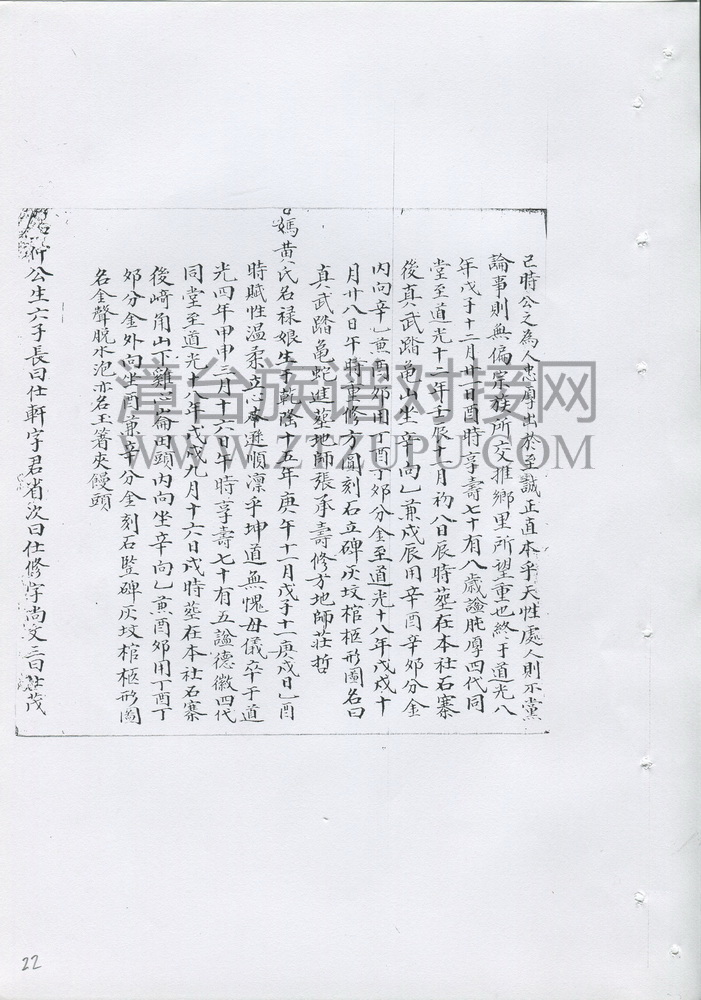 己時公之為人忠厚出於至誠正直本乎天性處人則不黨
論事則無偏宗族所交推鄉里所望重也終于道光八
年戊子十二月廿一日酉時享壽七十有八歲謚肫厚四代同
堂至道光十二年壬辰十一月初八日辰時葬在本社石寨
後真武踏亀山坐辛向乙兼戌辰用辛酉辛夘分金
內向辛乙兼酉夘用丁酉丁夘分金至道光十八年戊戌十
月廿八日午時重修方圓刻石立碑灰坟棺柩形圖名曰
真武踏亀蛇進塟地師張承壽修方地師莊哲
媽黃氏名禄娘生于乾隆十五年庚午十一月戊子十一庚戌日乙酉
時賦性温柔立心孝遜順凛乎坤道無愧母儀卒于道
光四年甲申三月十六日午時享壽七十有五謚德徽四代
同堂至道光十八年戊戌九月十六日戌時葬在本社石寨
後崎角山下雞心崙田頭內向坐辛向乙兼酉夘用丁酉丁
夘分金外向坐酉兼辛分金刻石豎碑灰坟棺柩形圖
名金聲脱水泡亦名玉箸夾饅頭
公生六子長曰仕軒字君省次曰仕修字尚文三曰仕茂
漳台族谱对接网
WWW.ZTZUPU.COM
22